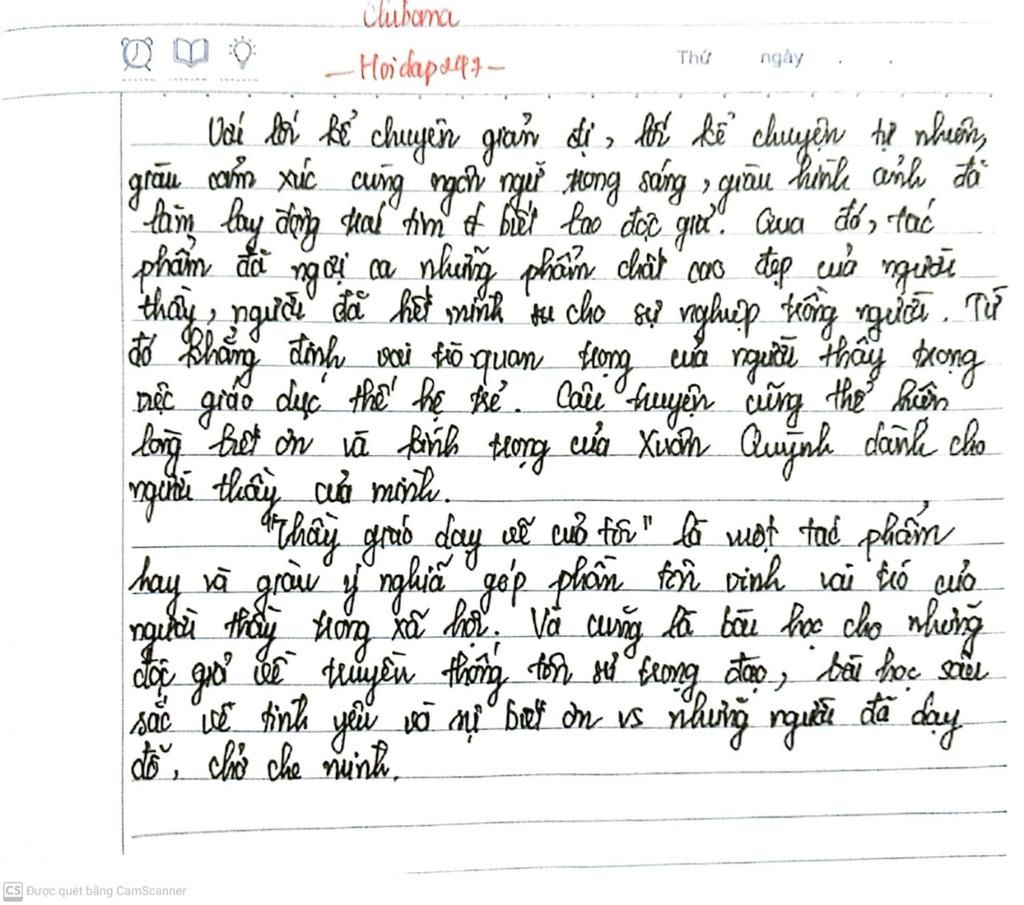 Clubama
— Hoidap247 —
Thứ ngày . .
Với lối kể chuyện giản dị, lối kể chuyện tự nhiên,
giàu cảm xúc cùng ngôn ngữ trong sáng, giàu hình ảnh đã
làm lay động trái tim biết bao độc giả. Qua đó, tác
phẩm đã ngợi ca những phẩm chất cao đẹp của người
thầy, người đã hết mình cho sự nghiệp trồng người. Từ
đó khẳng định vai trò quan trọng của người thầy trong
việc giáo dục thế hệ trẻ. Câu chuyện cũng thể hiện
lòng biết ơn và kính trọng của Xuân Quỳnh dành cho
người thầy của mình.
"Thầy giáo dạy vẽ của tôi" là một tác phẩm
hay và giàu ý nghĩa góp phần tôn vinh vai trò của
người thầy trong xã hội. Và cũng là bài học cho những
độc giả về truyền thống tôn sư trọng đạo, bài học sâu
sắc về tình yêu và sự biết ơn vs những người đã dạy
dỗ, chở che mình.
CS Được quét bằng CamScanner